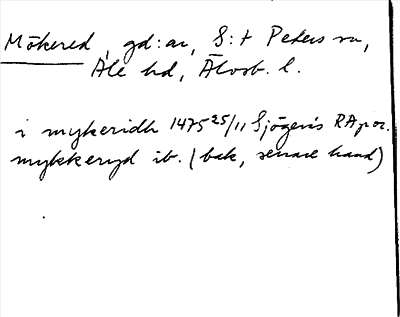 Mökered, gd:ar, S:t Peters sn,
Ale hd, Älvsb. l.
i mykeridh 1475 25/11 Sjögrens RAp or.
mykkeryd ib. (bak, senare hand)